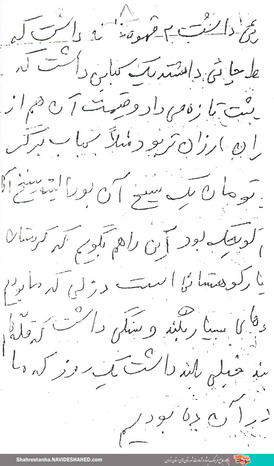 ۸
داشت ۲ قهوه خانه داشت که
چائی داشتند یک کبابی داشت که
تازه می داد و قیمت آن هم از
ارزان تر بود مثلاً کباب برگ
تومان یک سیخ آن بود البته سیخ
کوچک بود این را هم بگویم که کردستان
کوهستانی است دزلی که ما بودیم
های بسیار بلند و سنگی داشت که قله
خیلی بلند داشت یک روز که ما
در آن ده بودیم
Shahrestanha.NAVIDESHAHED.com